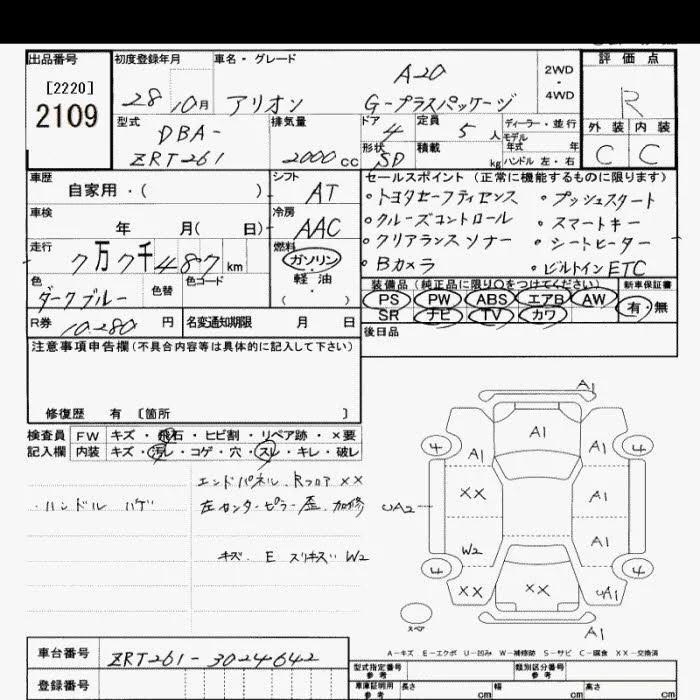 出品番号
[2220]
2109
初度登録年月
28 10月
車名・グレード
アリオン
A20
G-プラスパッケージ
2WD
・
4WD
評価点
R
外装 内装
C C
型式
DBA-
ZRT261
排気量
2000cc
ドア
4
定員
5人
ディーラー・並行
モデル
年式 年
形状
SD
積載
kg
ハンドル 左・右
車歴
自家用・( )
シフト
AT
車検
年 月( 日)
冷房
AAC
走行
7万7千487km
燃料
ガソリン
・
軽油
・
( )
色
ダークブルー
色替
色コード
R券
10.280円
名変通知期限 月 日
セールスポイント(正常に機能するものに限ります)
・トヨタセーフティセンス ・プッシュスタート
・クルーズコントロール ・スマートキー
・クリアランスソナー ・シートヒーター
・Bカメラ ・ビルトインETC
装備品(純正品に限り○をつけてください)
PS PW ABS エアB AW
SR ナビ TV カワ
新車保証書
有・無
後日品
注意事項申告欄(不具合内容等は具体的に記入して下さい)
修復歴 有 〔箇所 〕
検査員
記入欄
FW キズ・飛石・ヒビ割・リペア跡・×要
内装 キズ・汚レ・コゲ・穴・スレ・キレ・破レ
・ハンドル ハゲ
エンドパネル.Rフロア XX
左センターピラー歪.加修
キズ.E スリキズ W2
A1
A1
4 A1 A1 4
XX A1
UA2
W2 A1
4 4
XX XX UA1
スペア
A1
A-キズ E-エクボ U-凹み W-補修跡 S-サビ C-腐食 XX-交換済
車台番号
ZRT261-3024642
登録番号
型式指定番号
参考
類別区分番号
参考
車庫証明用
参考
長さ cm 幅 cm 高さ cm